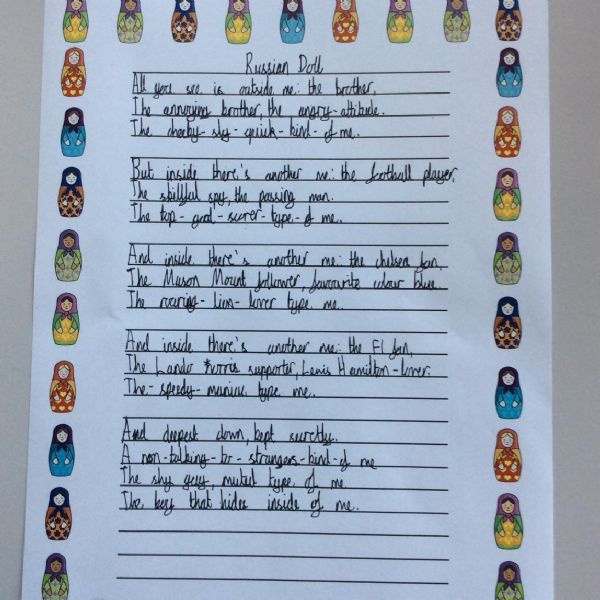 Russian Doll
All you see is outside me: the brother,
The annoying brother, the angry-attitude.
The cheeky-sly-quick-kind-of me.
But inside there's another me: the football player,
The skillful spy, the passing man.
The top-goal-scorer-type-of me.
And inside there's another me: the chelsea fan,
The Mason Mount follower, favourite colour blue.
The roaring-lion-lover type me.
And inside there's another me: the F1 fan,
The Lando Norris supporter, Lewis Hamilton-lover.
The-speedy-maniac type me.
And deepest down, kept secretly.
A non-talking-to-strangers-kind-of me
The shy guy, muted type of me
The boy that hides inside of me.